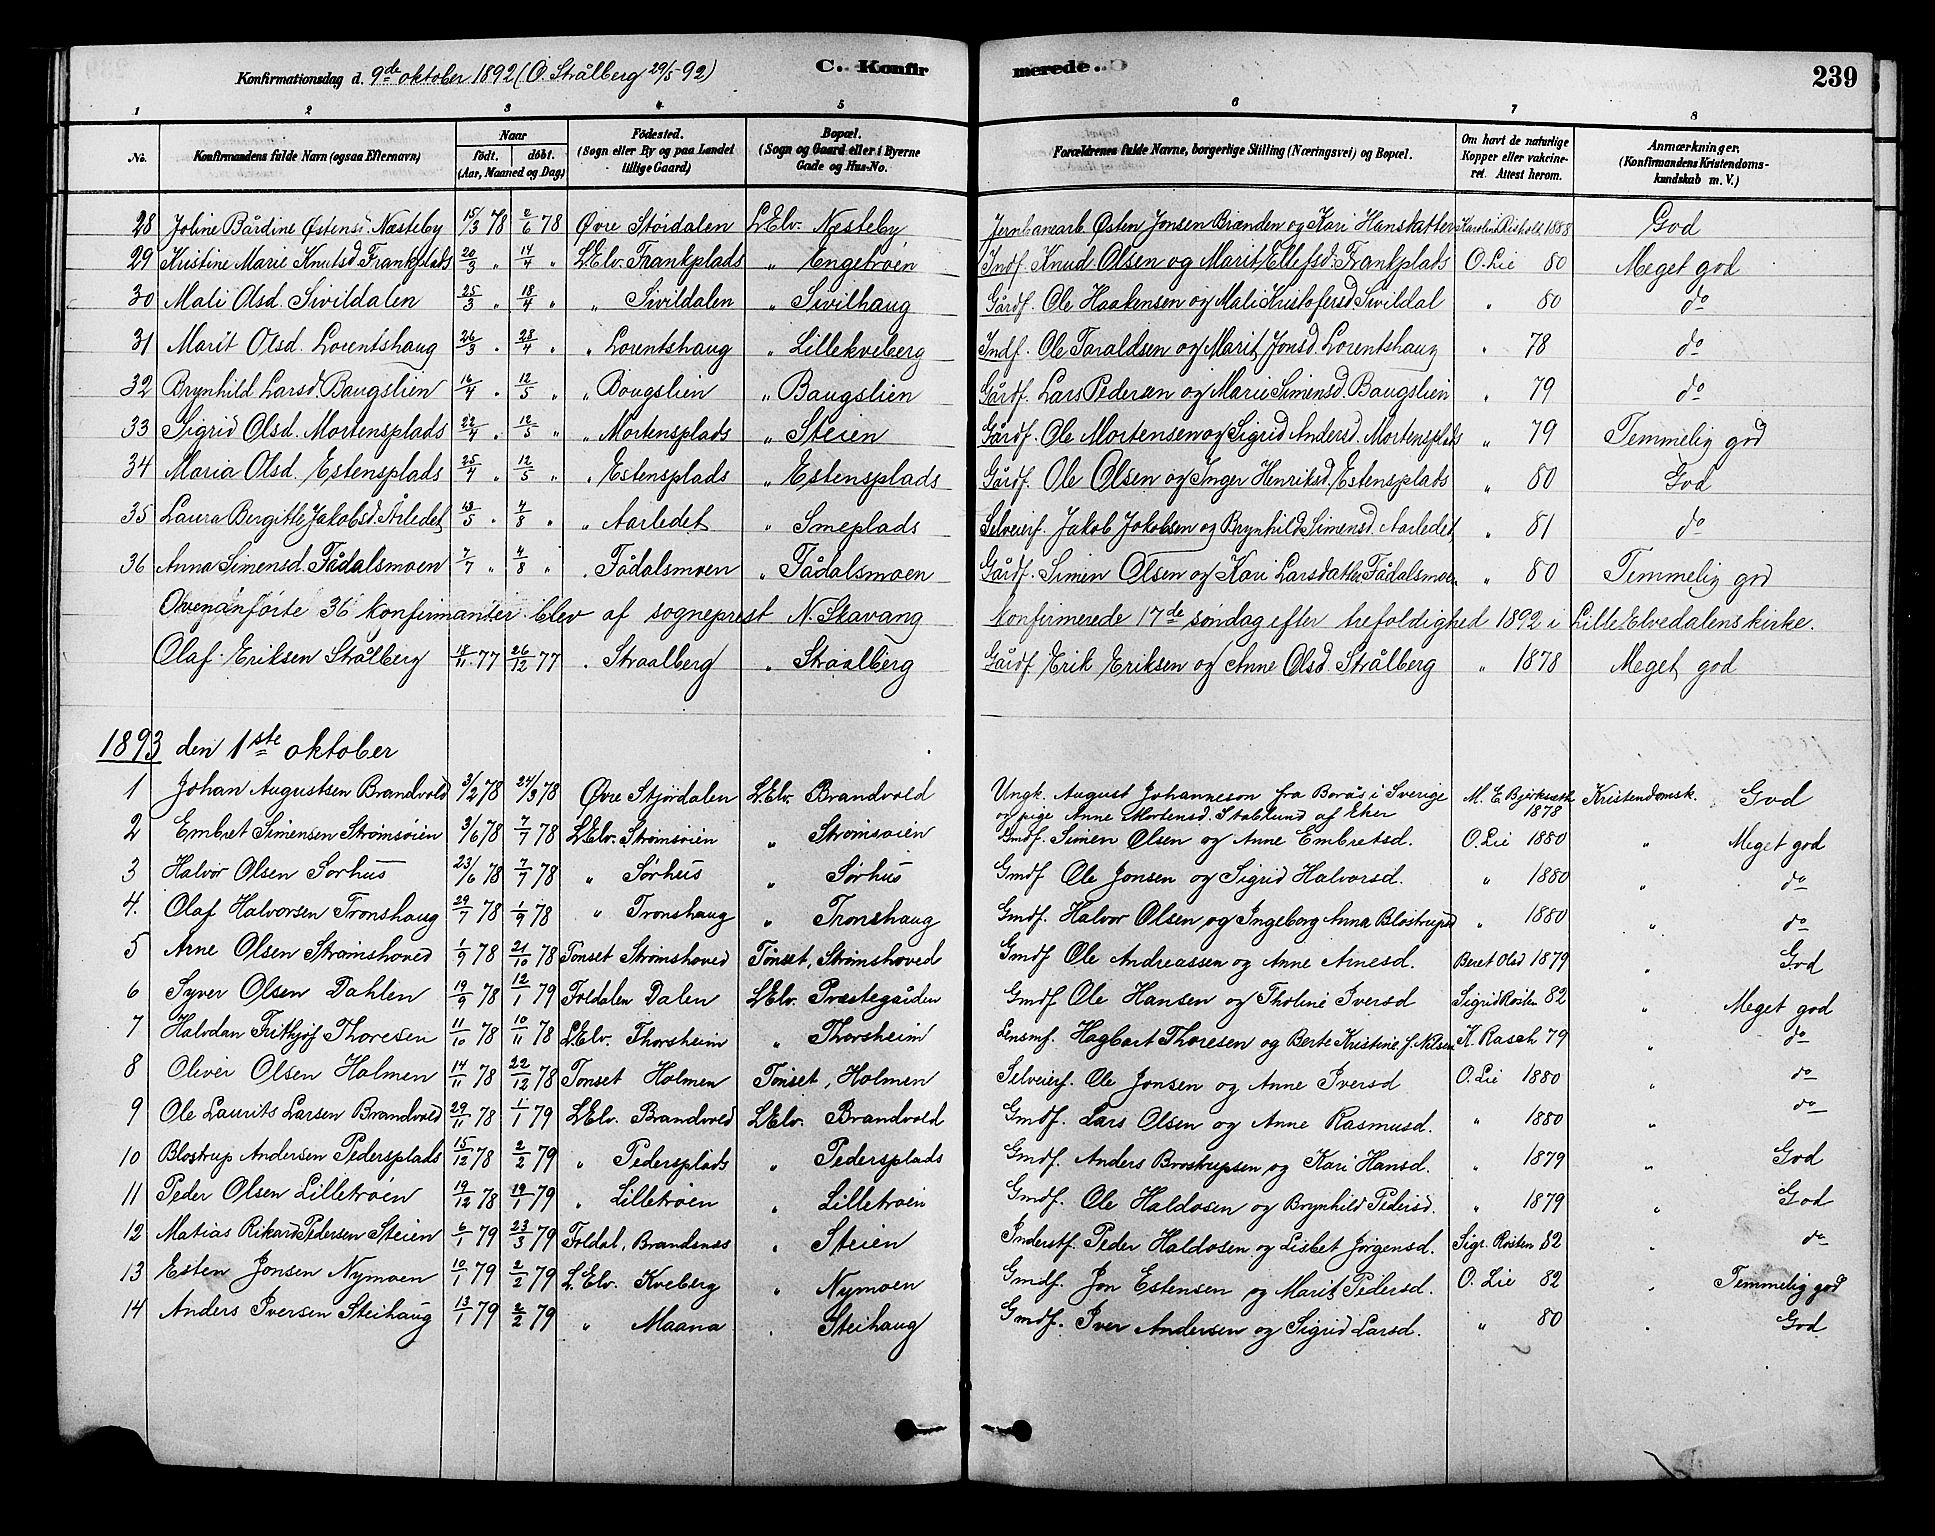 Konfirmationsdag d. 9de oktober 1892 (O. Strålberg 29/5 92) C. Konfirmerede. 239
1 2 3 4 5 6 7 8
No. Konfirmandens fulde Navn (ogsaa Efternavn) Naar født. døbt. (Aar, Maaned og Dag) Fødested. (Sogn eller By og paa Landet tillige Gaard) Bopæl. (Sogn og Gaard eller i Byerne Gade og Hus-No. Forældrenes fulde Navne, borgerlige Stilling (Næringsvei) og Bopæl. Om havt de naturlige Kopper eller vakcineret. Attest herom. Anmærkninger. (Konfirmandens Kristendomskundskab m. V.)
28 Joline Bårdine Østensd. Næsteby 15/3 78 2/6 78 Øvre Stördalen L. Elv. Næsteby Jernbanearb. Østen Jonsen Brænden og Kari Hansdatter 1888 God
29 Kristine Marie Knutsd. Frankplads 20/3 " 14/4 " L. Elv. Frankplads " Engetrøen Indf. Knud Olsen og Marit Ellefsd. Frankplads O. Lie 80 Meget god
30 Mali Olsd. Sivildalen 25/3 " 18/4 " " Sivildalen " Sivilhaug Gårdf. Ole Haakensen og Mali Kristofersd. Sivildal " 80 do
31 Marit Olsd. Lorentshaug 26/3 " 28/4 " " Lorentshaug " Lillekveberg Indf. Ole Taraldsen og Marit Jonsd. Lorentshaug " 78 do
32 Brynhild Larsd. Baugslien 16/4 " 12/5 " " Baugslien " Baugslien Gårdf. Lars Pedersen og Marie Simensd. Baugslien " 79 do
33 Sigrid Olsd. Mortensplads 22/4 " 12/5 " " Mortensplads " Steien Gårdf. Ole Mortensen og Sigrid Andersd. Mortensplads " 79 Temmelig god
34 Maria Olsd. Estensplads 25/4 " 12/5 " " Estensplads " Estensplads Gårdf. Ole Olsen og Inger Henriksd. Estensplads " 80 God
35 Laura Bergitte Jakobsd. Årledet /5 " 4/8 " " Aarledet " Smeplads Selveierf. Jakob Jakobsen og Brynhild Simensd. Aarledet " 81 do
36 Anna Simensd. Fådalsmoen 7/7 " 4/8 " " Fådalsmoen " Fådalsmoen Gårdf. Simen Olsen og Kari Larsdatter Fådalsmoen " 80 Temmelig god
Ovenanførte 36 konfirmanter blev af sogneprest N. Skavang konfirmerede 17de søndag efter trefoldighed 1892 i Lille Elvedalens kirke.
Olaf Eriksen Strålberg 18/11 77 26/12 77 " Straalberg " Straalberg Gårdf. Erik Eriksen og Anne Olsd. Strålberg " 1878 Meget god
1893 den 1ste oktober
1 Johan Augustsen Brandvold 3/2 78 24/3 78 Øvre Stjørdalen L. Elv. Brandvold Ungk. August Johanneson fra Borås i Sverige M. E. Björkseth Kristendomsk. God
og pige Anne Mortensd. Stablund af Eker 1878
2 Embret Simensen Strømsøien 3/6 78 7/7 78 L. Elv. Strømsøien " Strømsøien Gmdf. Simen Olsen og Anne Embretsd. O. Lie 1880 " Meget god
3 Halvor Olsen Sørhus 23/6 78 7/7 78 " Sørhus " Sørhus Gmdf Ole Jonsen og Sigrid Halvorsd. " 1880 " do
4. Olaf Halvorsen Tronshaug 29/7 78 1/9 78 " Tronshaug " Tronshaug Gmdf. Halvor Olsen og Ingeborg Anna Blostrupsd " 1880 " do
5 Arne Olsen Strømshoved 1/9 78 21/10 78 Tønset Strømshoved Tønset, Strømshoved Gmdf Ole Andreassen og Anne Arnesd. Beret Olsd 1879 " God
6 Syver Olsen Dahlen 19/9 78 12/1 79 Foldalen Dalen L. Elv. Præstegården Gmdf Ole Hansen og Tholine Iversd Sigrid Røsten 82 " Meget god
7 Halvdan Frithjof Thoresen 11/10 78 10/11 78 L. Elv. Thorsheim " Thorsheim Lensmf. Hagbart Thoresen og Berte Kristine J. Nilsen K. Rasch 79 " do
8 Oliver Olsen Holmen 14/11 78 22/12 78 Tønset Holmen Tønset, Holmen Selveierf. Ole Jonsen og Anne Iversd O. Lie 1880 " do
9 Ole Laurits Larsen Brandvold 29/11 78 1/1 79 L. Elv. Brandvold L. Elv. Brandvold Gmdf. Lars Olsen og Anne Rasmusd. " 1880 " do
10 Blostrup Andersen Pedersplads 15/12 78 2/2 79 " Pedersplads " Pedersplads Gmdf. Anders Brostrupsen og Kari Hansd. " 1879 " God
11 Peder Olsen Lilletrøen 19/12 78 19/1 79 " Lilletrøen " Lilletrøen Gmdf. Ole Haldosen og Brynhild Pedersd. " 1879 " God
12 Matias Rikard Pedersen Steien 6/1 79 23/3 79 Foldal, Brandsnes " Steien Inderstf. Peder Haldosen og Lisbet Jørgensd. Sigr. Røsten 82 " do
13 Esten Jonsen Nymoen 10/1 79 2/2 79 L. Elv. Kveberg " Nymoen Gmdf. Jon Estensen og Marit Pedersd. O. Lie 82 " Temmelig god
14 Anders Iversen Steihaug 13/1 79 2/2 79 " Maana " Steihaug Gmdf. Iver Andersen og Sigrid Larsd. " 80 " God